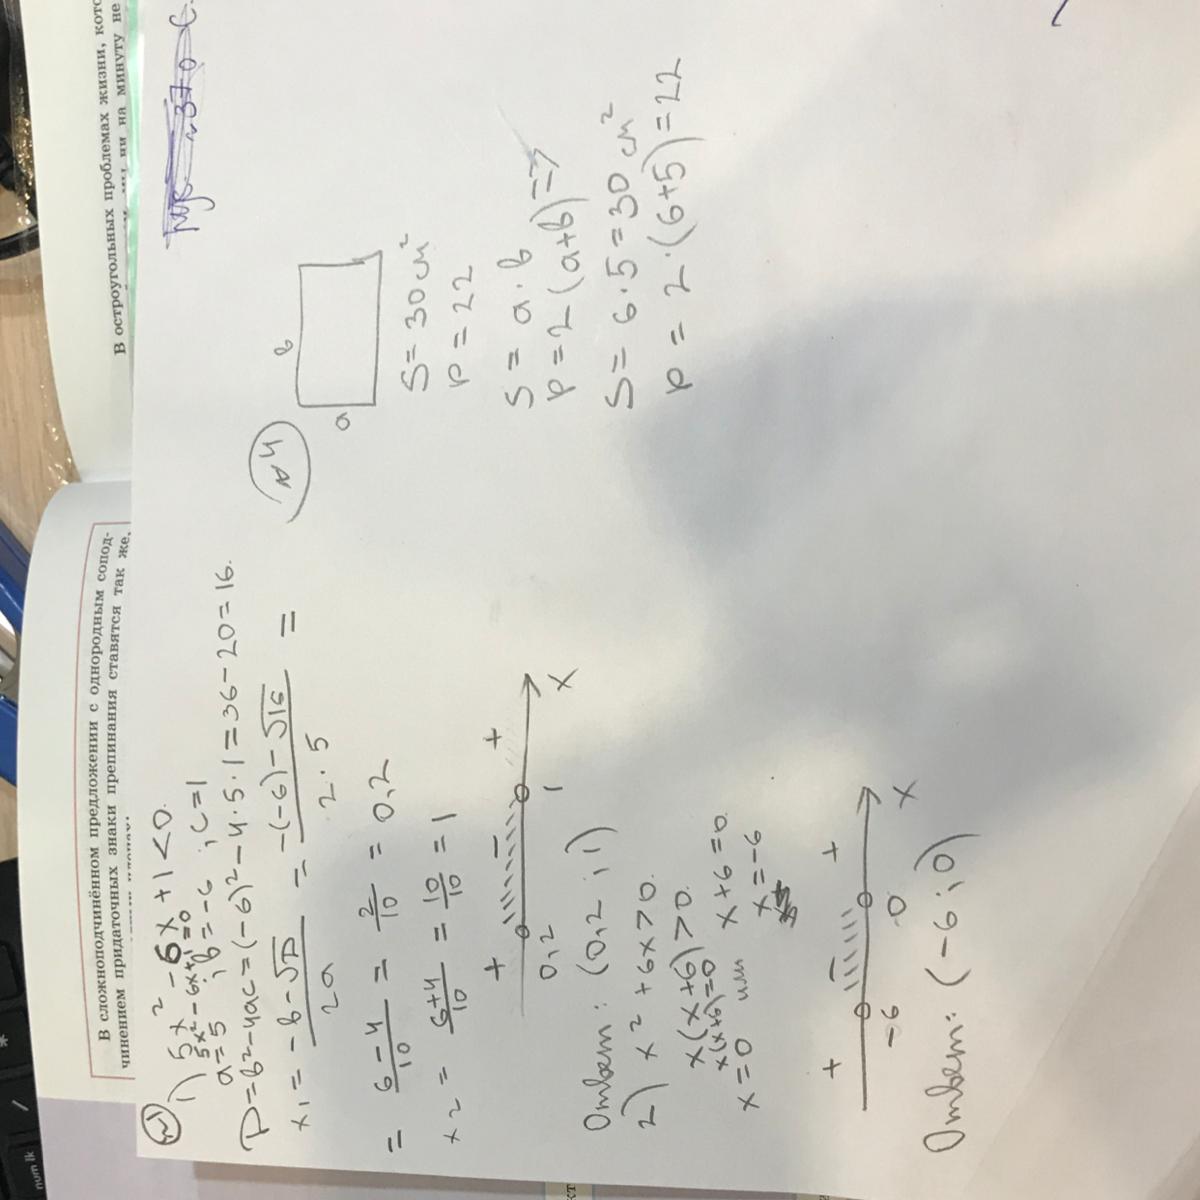 В сложноподчинённом предложении с однородным сопод-
чинением придаточных знаки препинания ставятся так же,
В остроугольных проблемах жизни, кото
ни на минуту не
num lk
/
*
№1
1) 5x² - 6x + 1 < 0.
5x² - 6x + 1 = 0
a = 5 ; b = -6 ; c = 1
D = b² - 4ac = (-6)² - 4·5·1 = 36 - 20 = 16.
x1 = (-b - √D)/(2a) = (-(-6) - √16)/(2·5) =
= (6-4)/10 = 2/10 = 0,2
x2 = (6+4)/10 = 10/10 = 1
+ − +
0,2 1 x
Ответ: (0,2 ; 1)
2) x² + 6x > 0.
x(x+6) > 0.
x(x+6) = 0
x = 0 или x + 6 = 0.
x = -6
+ − +
-6 0 x
Ответ: (-6 ; 0)
№4
b
a
S = 30 см²
p = 22
S = a · b
p = 2(a+b) =>
S = 6·5 = 30 см²
p = 2·(6+5) = 22